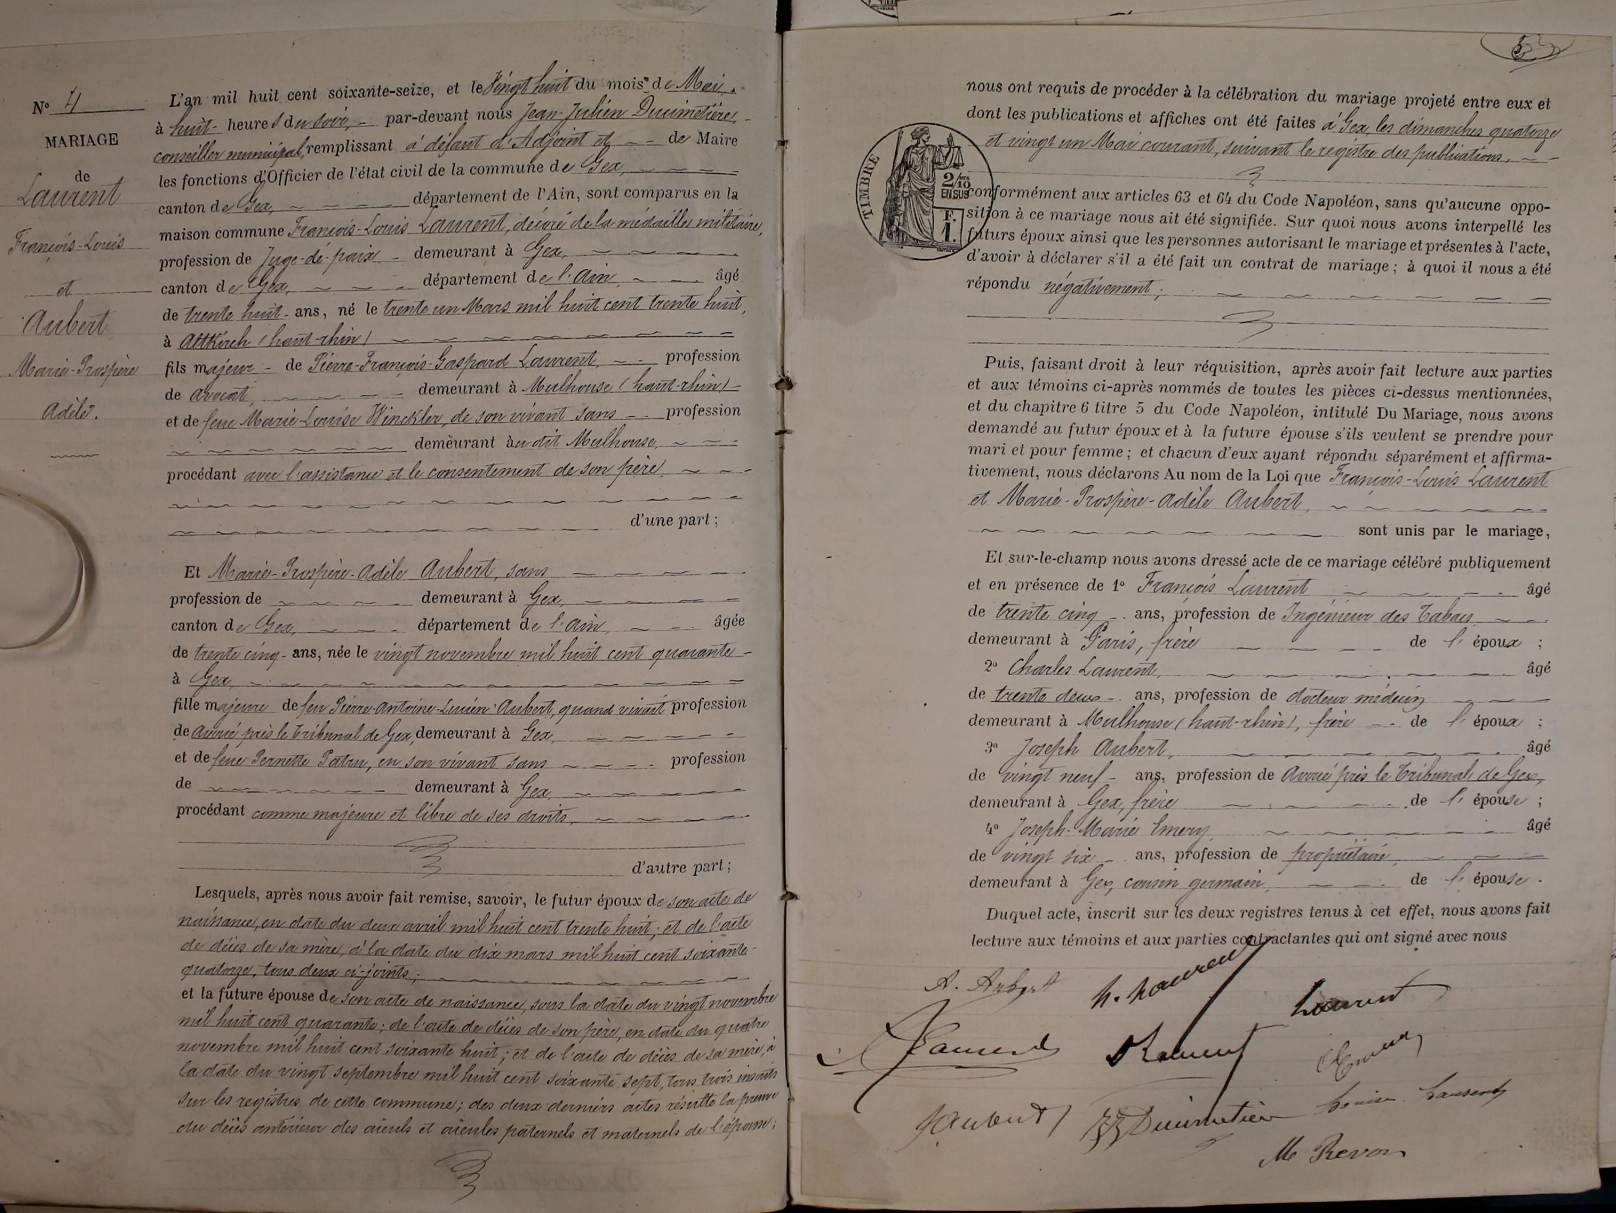 N° 4
MARIAGE
de
Laurent
François-Louis
et
Aubert
Marie-Prospère
Adèle.
L'an mil huit cent soixante-seize, et le Vingt huit du mois de Mai.
à huit heures du soir, par-devant nous Jean-Julien Ducimetière,
conseiller municipal, remplissant à défaut d'Adjoint et de Maire
les fonctions d'Officier de l'état civil de la commune de Gex,
canton de Gex, département de l'Ain, sont comparus en la
maison commune François-Louis Laurent, décoré de la médaille militaire,
profession de Juge-de-paix demeurant à Gex,
canton de Gex, département de l'Ain, âgé
de trente huit ans, né le trente un Mars mil huit cent trente huit,
à Altkirch (haut-rhin)
fils majeur de Pierre-François-Gaspard Laurent, profession
de avocat, demeurant à Mulhouse (haut-rhin)
et de feue Marie-Louise Winckler, de son vivant sans profession
demeurant au dit Mulhouse,
procédant avec l'assistance et le consentement de son père,
d'une part;
Et Marie-Prospère-Adèle Aubert, sans
profession de demeurant à Gex,
canton de Gex, département de l'Ain, âgée
de trente cinq ans, née le vingt novembre mil huit cent quarante
à Gex,
fille majeure de feu Pierre-Antoine-Lucien Aubert, quand vivait profession
de avoué près le Tribunal de Gex, demeurant à Gex,
et de feue Pernette Patru, en son vivant sans profession
de demeurant à Gex,
procédant comme majeure et libre de ses droits,
d'autre part;
Lesquels, après nous avoir fait remise, savoir, le futur époux de son acte de
naissance, en date du deux avril mil huit cent trente huit; et de l'acte
de décès de sa mère, à la date du dix mars mil huit cent soixante-
quatorze, tous deux ci-joints;
et la future épouse de son acte de naissance, sous la date du vingt novembre
mil huit cent quarante; de l'acte de décès de son père, en date du quatre
novembre mil huit cent soixante huit; et de l'acte de décès de sa mère, à
la date du vingt septembre mil huit cent soixante sept, tous trois inscrits
sur les registres de cette commune; des deux derniers actes résulte la preuve
du décès antérieur des aïeuls et aïeules paternels et maternels de l'épouse;
nous ont requis de procéder à la célébration du mariage projeté entre eux et
dont les publications et affiches ont été faites à Gex, les dimanches quatorze
et vingt un Mai courant, suivant le registre des publications,
TIMBRE
2/10 EN SUS
F. 1.
conformément aux articles 63 et 64 du Code Napoléon, sans qu'aucune oppo-
sition à ce mariage nous ait été signifiée. Sur quoi nous avons interpellé les
futurs époux ainsi que les personnes autorisant le mariage et présentes à l'acte,
d'avoir à déclarer s'il a été fait un contrat de mariage; à quoi il nous a été
répondu négativement;
Puis, faisant droit à leur réquisition, après avoir fait lecture aux parties
et aux témoins ci-après nommés de toutes les pièces ci-dessus mentionnées,
et du chapitre 6 titre 5 du Code Napoléon, intitulé Du Mariage, nous avons
demandé au futur époux et à la future épouse s'ils veulent se prendre pour
mari et pour femme; et chacun d'eux ayant répondu séparément et affirma-
tivement, nous déclarons Au nom de la Loi que François-Louis Laurent
et Marie-Prospère-Adèle Aubert,
sont unis par le mariage,
Et sur-le-champ nous avons dressé acte de ce mariage célébré publiquement
et en présence de 1° François Laurent âgé
de trente cinq ans, profession de Ingénieur des Tabacs,
demeurant à Paris, frère de l'époux;
2° Charles Laurent, âgé
de trente deux ans, profession de docteur médecin
demeurant à Mulhouse (haut-rhin), frère de l'époux;
3° Joseph Aubert, âgé
de vingt neuf ans, profession de Avoué près le Tribunal de Gex,
demeurant à Gex, frère de l'épouse;
4° Joseph-Marie Emery âgé
de vingt six ans, profession de propriétaire,
demeurant à Gex, cousin germain, de l'épouse.
Duquel acte, inscrit sur les deux registres tenus à cet effet, nous avons fait
lecture aux témoins et aux parties contractantes qui ont signé avec nous
A. Aubert Laurent Laurent
Laurent Laurent Emery
J Aubert JJ Ducimetière Louise Laurent
M Revon